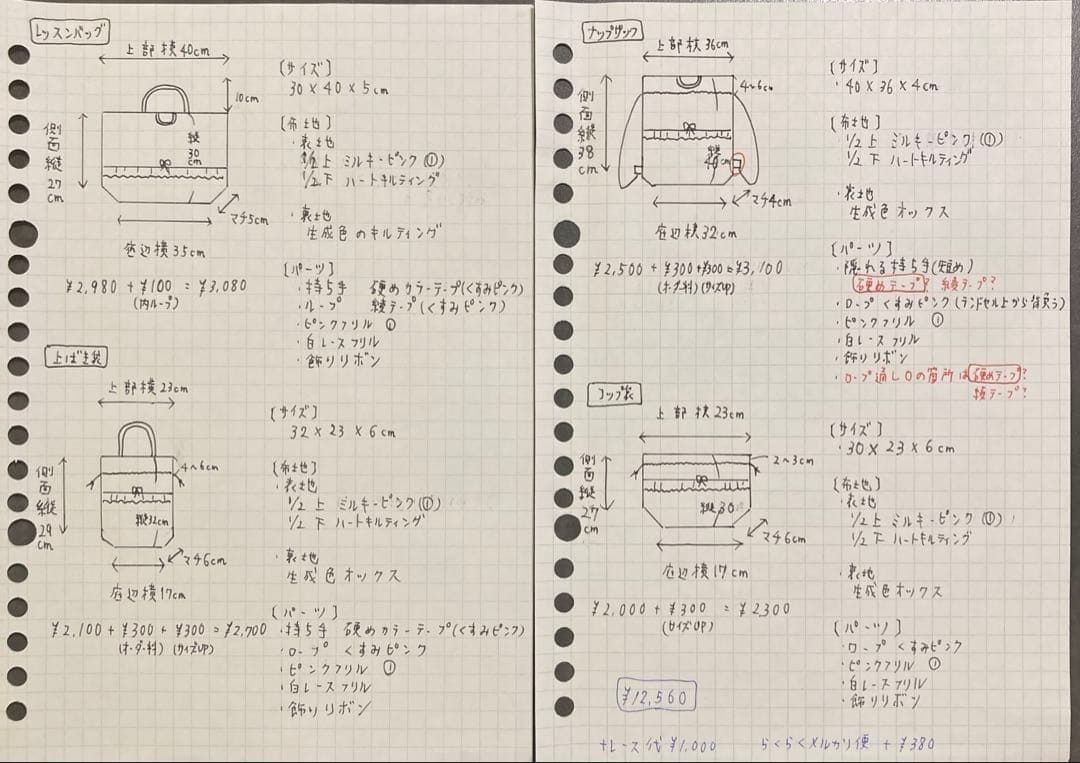 レッスンバッグ
上部横40cm
10cm
側面縦27cm
縦30cm
マチ5cm
底辺横35cm
¥2,980 + ¥100 = ¥3,080
(内ループ)
[サイズ]
30×40×5cm
[布地]
・表地
1/2上 ミルキーピンク(①)
1/2下 ハートキルティング
・裏地
生成色のキルティング
[パーツ]
・持ち手 硬めカラーテープ(くすみピンク)
・ループ 綾テープ(くすみピンク)
・ピンクフリル ①
・白レースフリル
・飾りリボン
上ばき袋
上部横23cm
4~6cm
側面縦29cm
縦32cm
マチ6cm
底辺横17cm
¥2,100 + ¥300 + ¥300 = ¥2,700
(オーダー料) (サイズUP)
[サイズ]
32×23×6cm
[布地]
・表地
1/2上 ミルキーピンク(①)
1/2下 ハートキルティング
・裏地
生成色オックス
[パーツ]
・持ち手 硬めカラーテープ(くすみピンク)
・ロープ くすみピンク
・ピンクフリル ①
・白レースフリル
・飾りリボン
ナップザック
上部横36cm
4~6cm
側面縦38cm
縦40cm
マチ4cm
底辺横32cm
¥2,500 + ¥300 + ¥300 = ¥3,100
(オーダー料) (サイズUP)
[サイズ]
・40×36×4cm
[布地]
1/2上 ミルキーピンク(①)
1/2下 ハートキルティング
・裏地
生成色オックス
[パーツ]
・隠れる持ち手(短め)
硬めテープ? 綾テープ?
・ロープくすみピンク(ランドセル上から背負う)
・ピンクフリル ①
・白レースフリル
・飾りリボン
・ロープ通し口の箇所は硬めテープ?
綾テープ?
コップ袋
上部横23cm
2~3cm
側面縦27cm
縦30
マチ6cm
底辺横17cm
¥2,000 + ¥300 = ¥2300
(サイズUP)
[サイズ]
・30×23×6cm
[布地]
・表地
1/2上 ミルキーピンク(①)
1/2下 ハートキルティング
・裏地
生成色オックス
[パーツ]
・ロープ くすみピンク
・ピンクフリル ①
・白レースフリル
・飾りリボン
¥12,560
+レース代¥1,000 らくらくメルカリ便 + ¥380